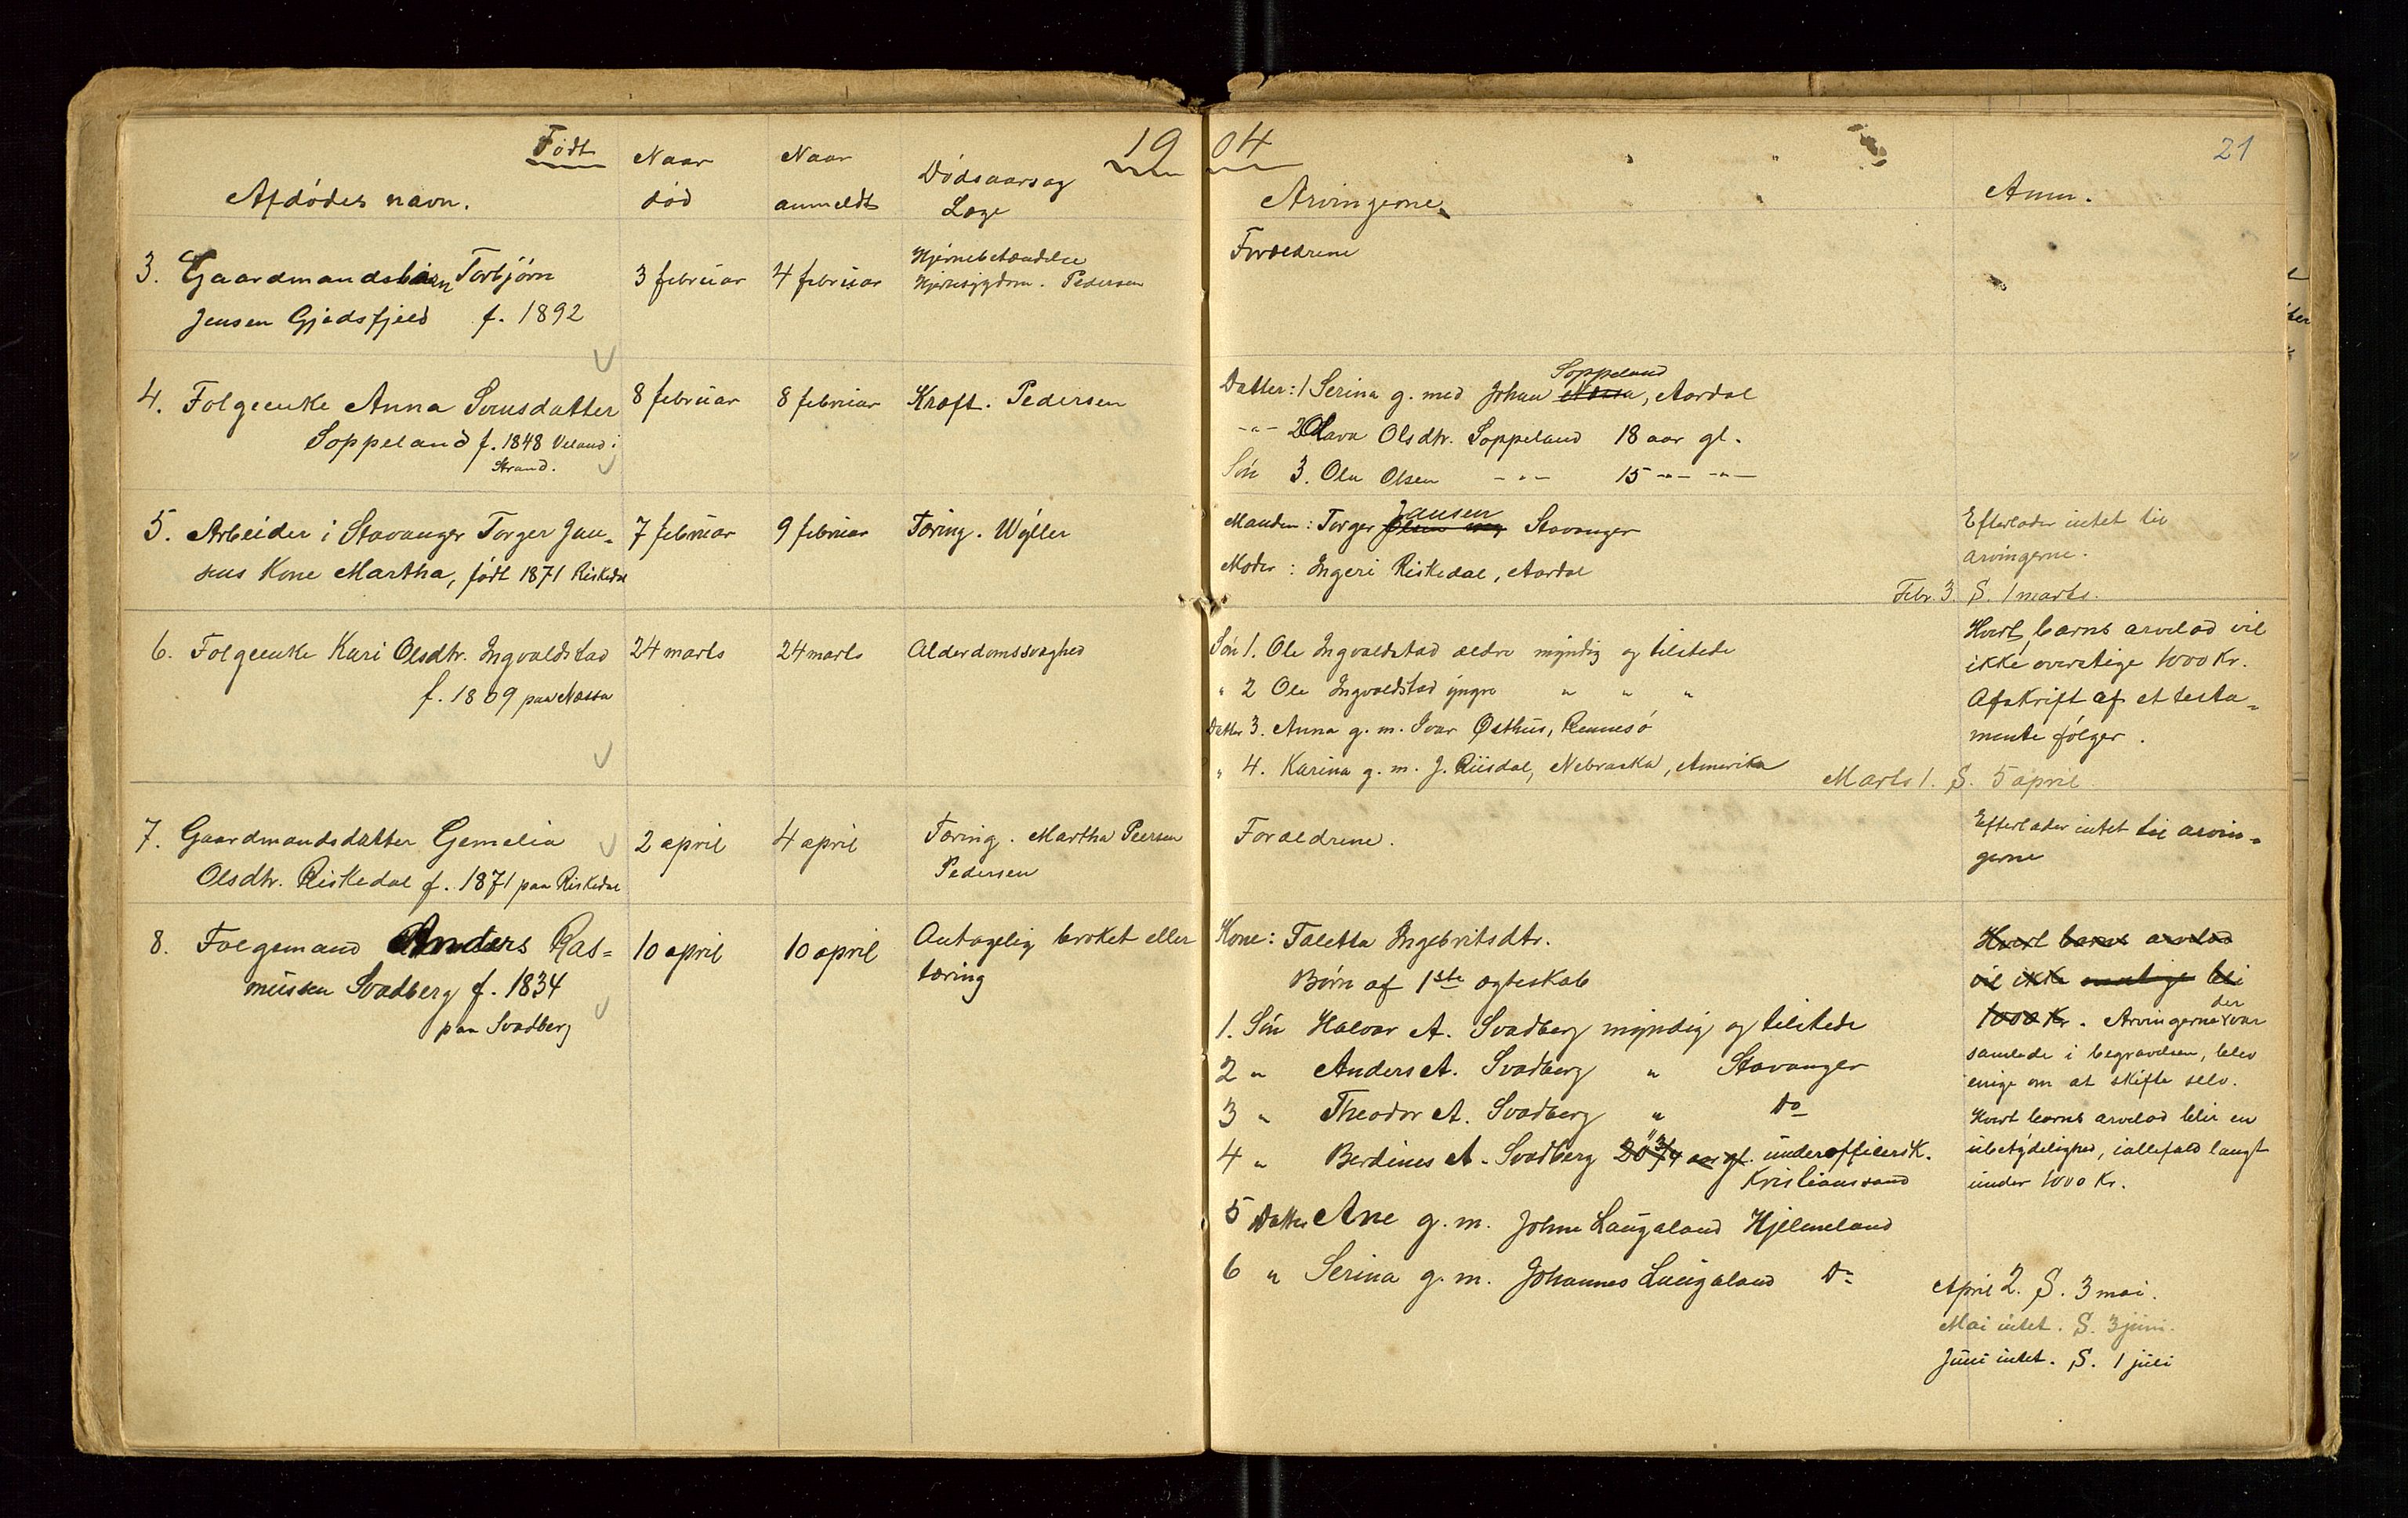 1904
21
Født
Afdødes navn.
Naar død
Naar anmeldt
Dødsaarsag Læge
Arvingerne
Anm.
3. Gaardmandsbarn Torbjørn
Jensen Gjedsfjeld f. 1892
3 februar
4 februar
Hjernebetændelse
Hjertesygdom. Pedersen
Forældrene
4. Folgeenke Anna Svensdatter
Soppeland f. 1848 Veland i
Strand.
8 februar
8 februar
Kræft. Pedersen
Datter: 1 Serina g. med Johan Soppeland, Aardal
-"- 2 Olava Olsdtr. Soppeland 18 aar gl.
Søn 3. Ole Olsen -"- 15 -"- -"-
5. Arbeider i Stavanger Torger Jan-
sens Kone Martha, født 1871 Riskedal
7 februar
9 februar
Tæring. Wyller
Manden: Torger Jansen Stavanger
Moder: Ingeri Riskedal, Aardal
Efterlader intet til
arvingerne.
Febr. 3. S. 1 marts.
6. Folgeenke Kari Olsdtr. Ingvaldstad
f. 1809 paa Nessa
24 marts
24 marts
Alderdomssvaghed
Søn 1. Ole Ingvaldstad ældre myndig og tilstede
" 2 Ole Ingvaldstad yngre " " "
Datter 3. Anna g. m. Ivar Østhus, Rennesø
" 4. Karina g. m. J. Riisdal, Nebraska, Amerika
Hvert barns arvelod vil
ikke overstige 1000 Kr.
Afskrift af et testa-
mente følger.
Marts 1. S. 5 april
7. Gaardmandsdatter Gemalia
Olsdtr. Riskedal f. 1871 paa Riskedal
2 april
4 april
Tæring. Martha Peersen
Pedersen
Forældrene.
Efterlader intet til arvin-
gerne
8. Folgemand Anders Ras-
mussen Svadberg f. 1834
paa Svadberg
10 april
10 april
Antagelig broket eller
tæring
Kone: Taletta Ingebritsdtr.
Børn af 1ste ægteskab
1. Søn Halvor A. Svadberg myndig og tilstede
2 " Anders A. Svadberg " Stavanger
3 " Theodor A. Svadberg " Do
4 " Berdines A. Svadberg 20 3/4 aar gl. " underofficersk.
Kristianssand
5 Datter Ane g. m. John Laugaland Hjelmeland
6 " Serina g. m. Johannes Laugaland Do
Hvert barns arvelod
vil ikke overstige bli
1000 Kr. Arvingerne der var
samlede i begravelsen, blev
enige om at skifte selv.
Hvert barns arvelod blir en
ubetydelighed, iallefald langt
under 1000 Kr.
April 2. S. 3 mai.
Mai intet. S. 3 juni.
Juni intet. S. 1 juli